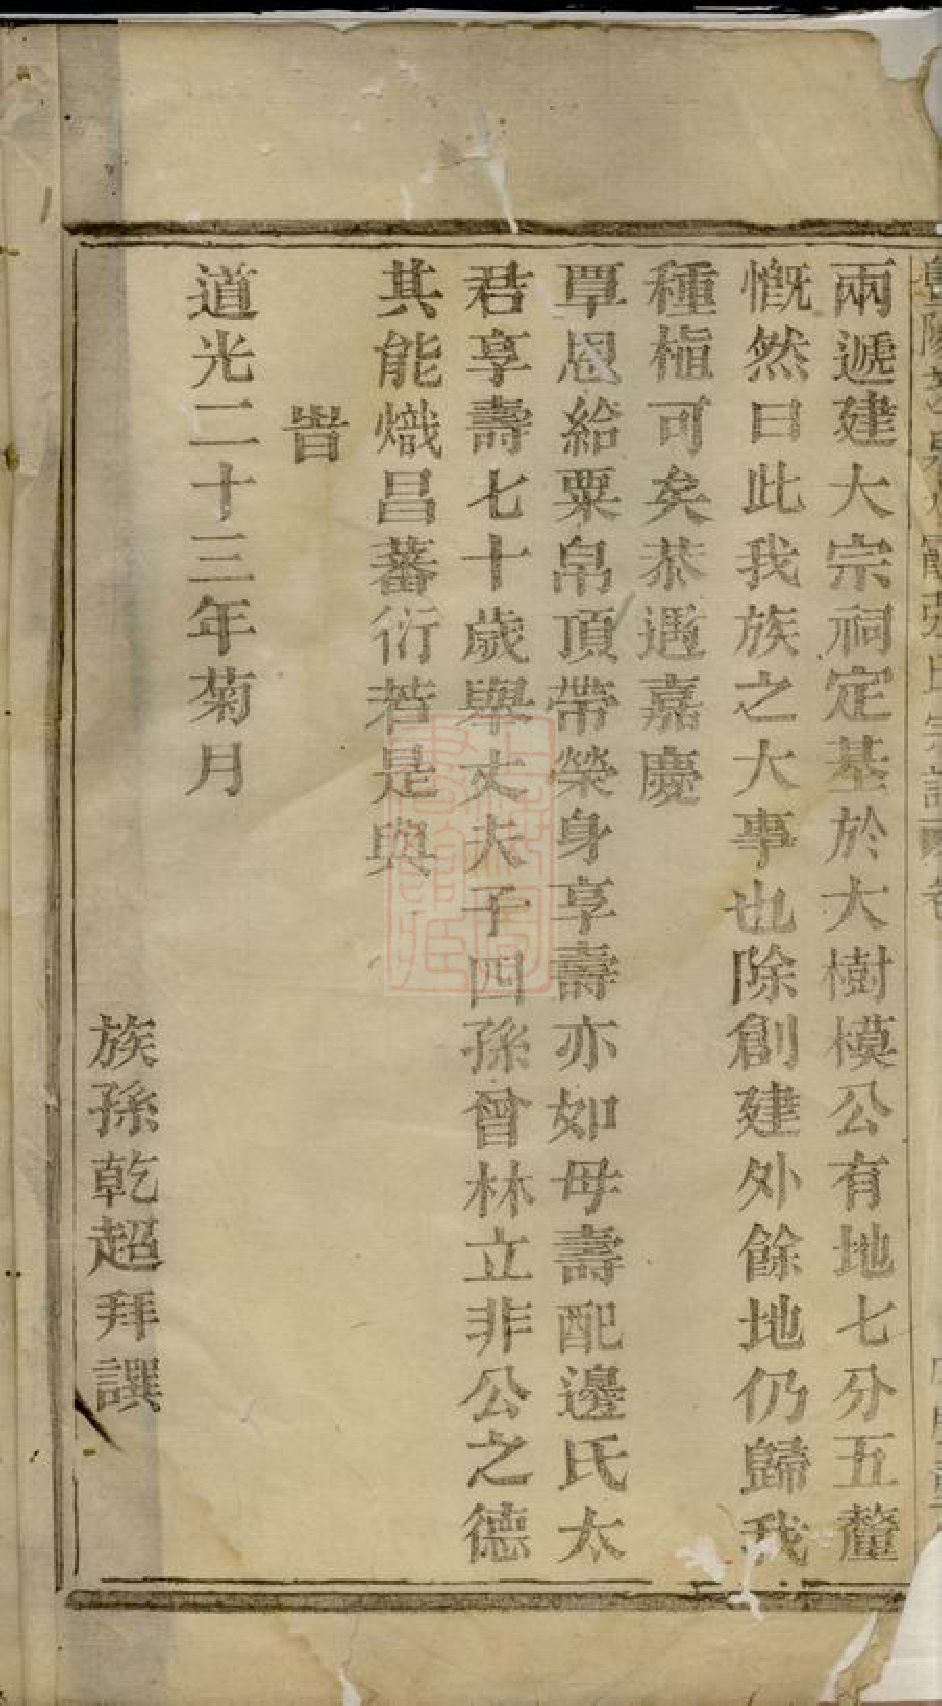 兩遞建大宗祠定基於大樹模公有地七分五釐
慨然曰此我族之大事也除創建外餘地仍歸我
種植可矣恭遇嘉慶
覃恩給粟帛頂帶榮身享壽亦如母壽配邊氏太
君享壽七十歲舉丈夫子四孫曾林立非公之德
其能熾昌蕃衍若是與
旹
道光二十三年菊月
族孫乾超拜譔